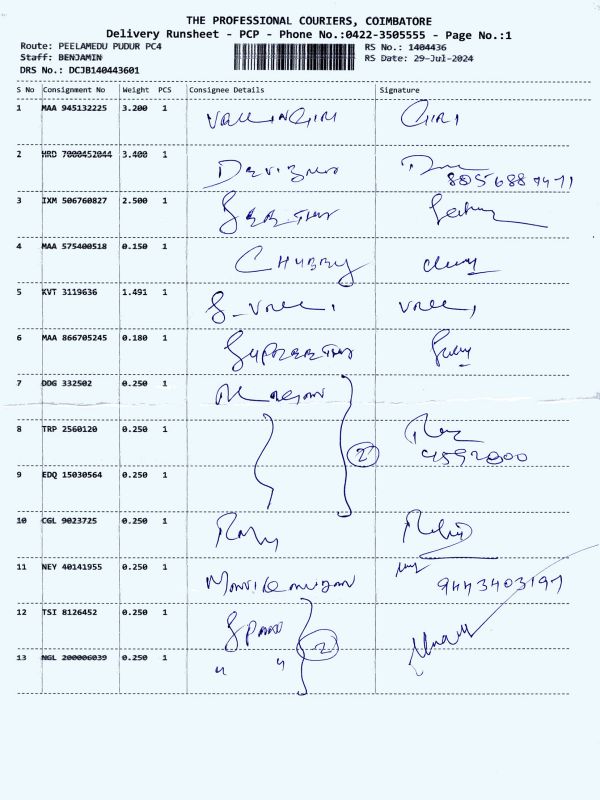 THE PROFESSIONAL COURIERS, COIMBATORE
Delivery Runsheet - PCP - Phone No.:0422-3505555 - Page No.:1
Route: PEELAMEDU PUDUR PC4 RS No.: 1404436
Staff: BENJAMIN RS Date: 29-Jul-2024
DRS No.: DCJB140443601
S No Consignment No Weight PCS Consignee Details Signature
1 MAA 945132225 3.200 1 GIRI
2 HRD 7000452044 3.400 1
3 IXM 506760827 2.500 1
4 MAA 575400518 0.150 1 CHUBBY
5 KVT 3119636 1.491 1 S-Valli valli
6 MAA 866705245 0.180 1
7 DDG 332502 0.250 1
8 TRP 2560120 0.250 1
2
9 EDQ 15030564 0.250 1
10 CGL 9023725 0.250 1
11 NEY 40141955 0.250 1 9443403197
12 TSI 8126452 0.250 1
2
13 NGL 200006039 0.250 1 " "